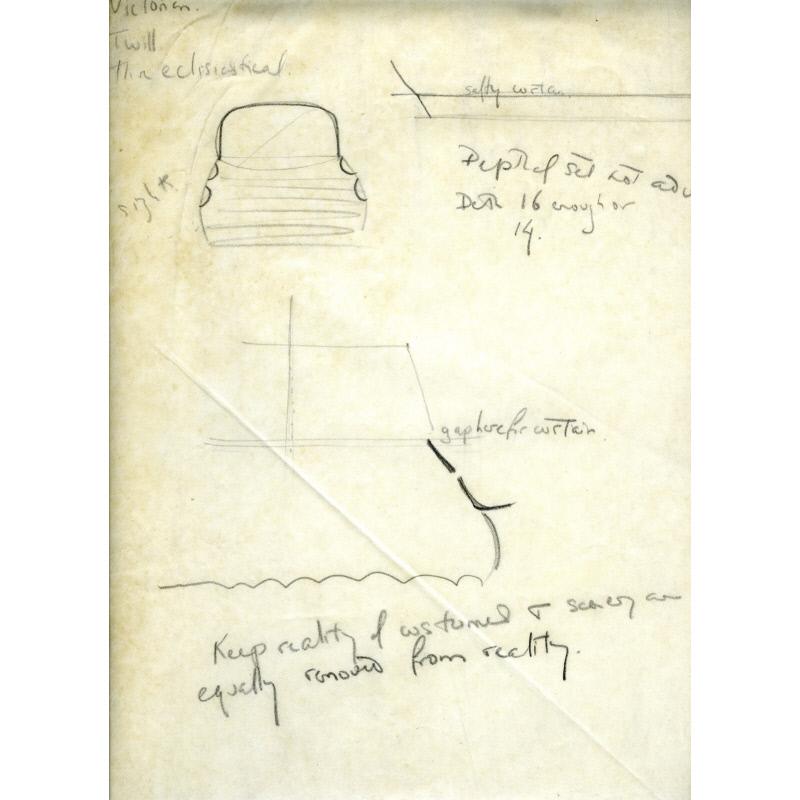 Victorian.
Twill
thin eclisiastical.
safty curtain
sight
Depth of set not adv
Deth 16 enough or
14.
gap here for curtain
Keep reality of costumed + scenery are
equally removed from reality.